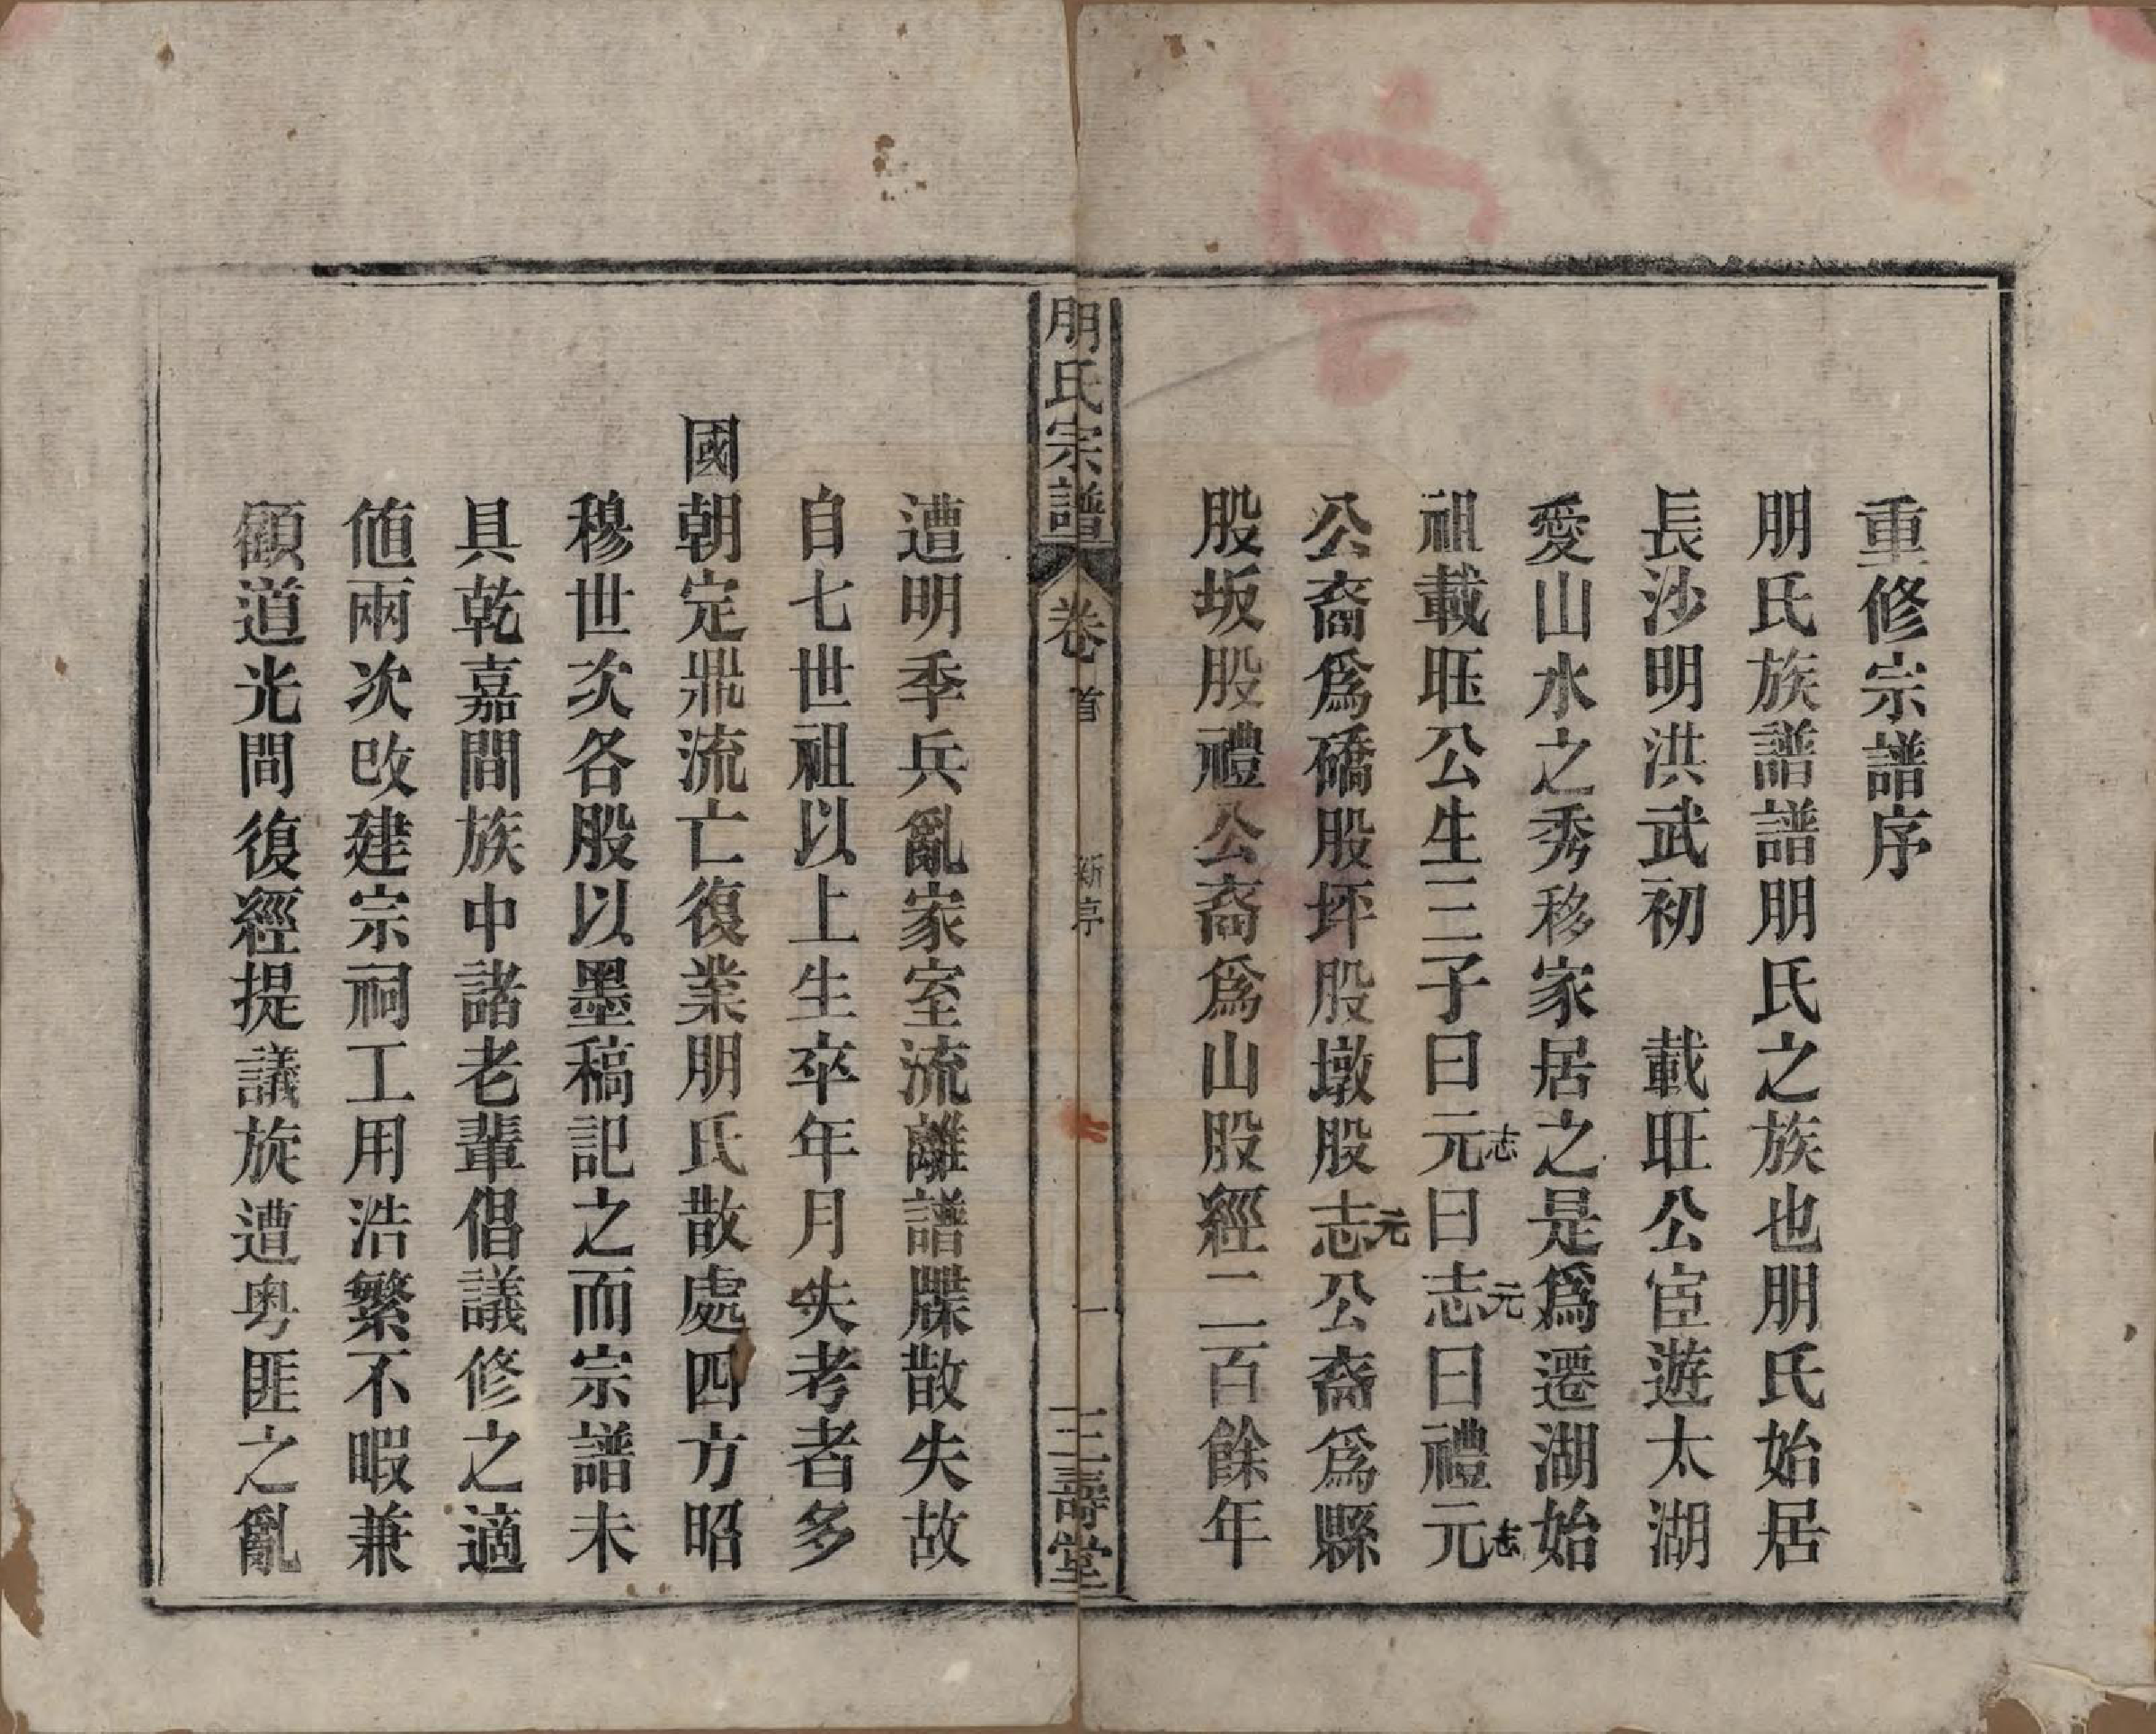 重修宗譜序
朋氏族譜譜朋氏之族也朋氏始居
長沙明洪武初　載旺公宦遊太湖
愛山水之秀移家居之是爲遷湖始
祖載旺公生三子曰元志曰志元曰禮元志
公裔爲礄股坪股墩股志元公裔爲縣
股坂股禮公裔爲山股經二百餘年
朋氏宗譜
卷首
新序
一
三壽堂
遭明季兵亂家室流離譜牒散失故
自七世祖以上生卒年月失考者多
國朝定鼎流亡復業朋氏散處四方昭
穆世次各股以墨稿記之而宗譜未
具乾嘉間族中諸老輩倡議修之適
値兩次改建宗祠工用浩繁不暇兼
顧道光間復經提議旋遭粤匪之亂